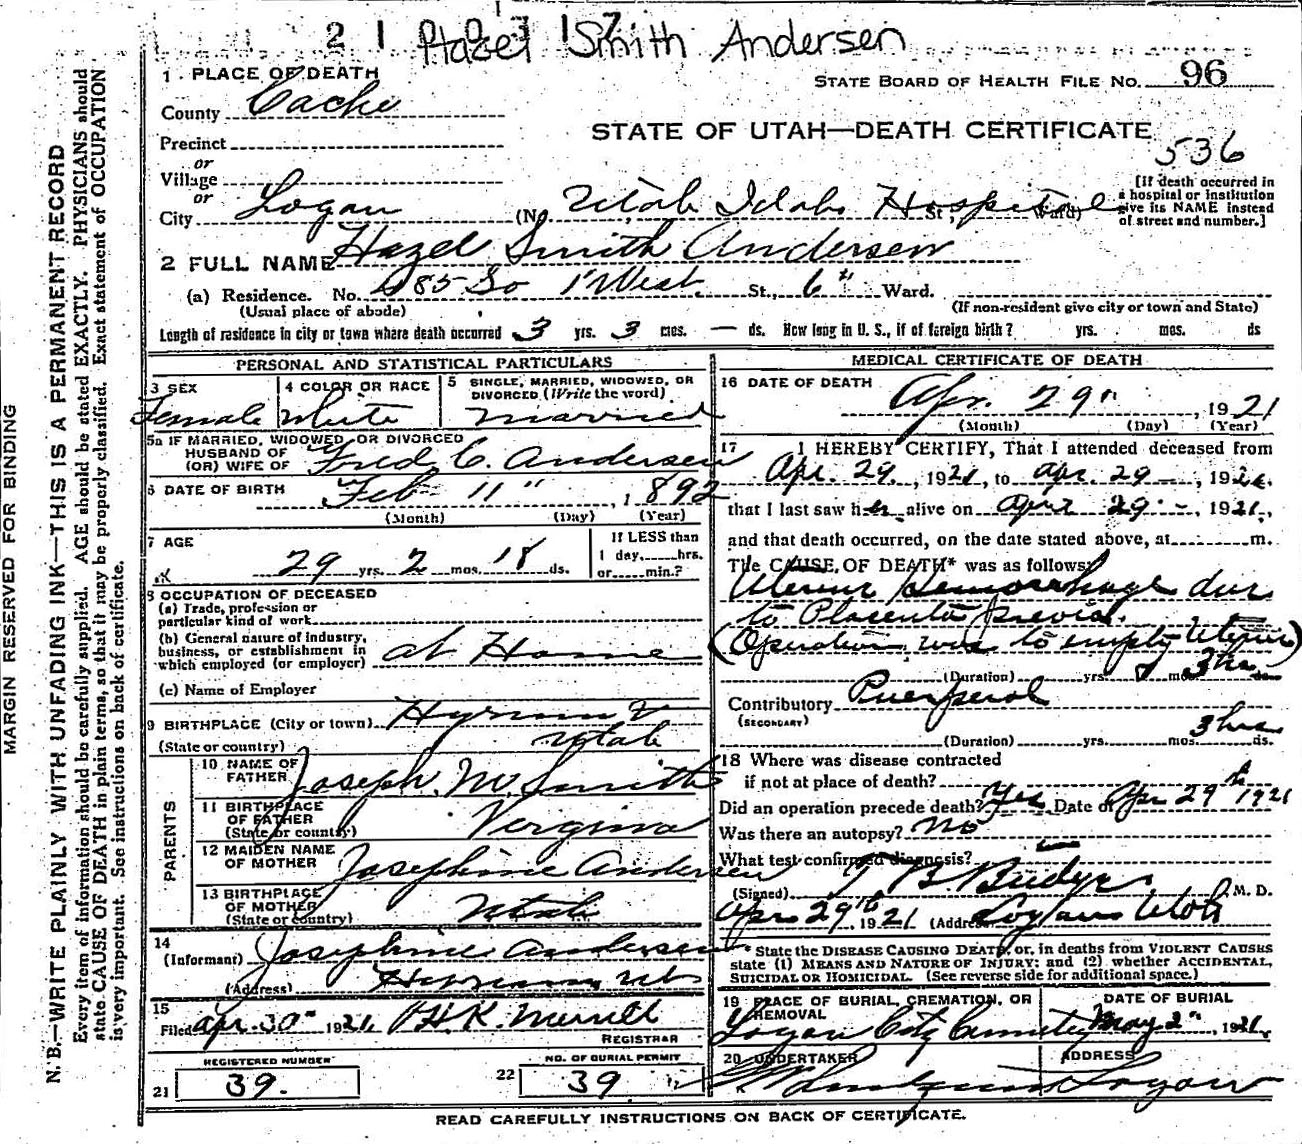 2 1 0 3 1 7
Hazel Smith Andersen
1 PLACE OF DEATH
STATE BOARD OF HEALTH FILE NO. 96
County Cache
STATE OF UTAH—DEATH CERTIFICATE
536
Precinct
or
Village
or
City Logan (No. Utah Idaho Hospital St., Ward)
[If death occurred in
a hospital or institution
give its NAME instead
of street and number.]
2 FULL NAME Hazel Smith Andersen
(a) Residence. No. 685 So 1" West. St., 6" Ward.
(Usual place of abode) (If non-resident give city or town and State)
Length of residence in city or town where death occurred 3 yrs. 3 mos. — ds. How long in U. S., if of foreign birth? yrs. mos. ds
PERSONAL AND STATISTICAL PARTICULARS
3 SEX Female
4 COLOR OR RACE White
5 SINGLE, MARRIED, WIDOWED, OR
DIVORCED (Write the word)
Married
5a IF MARRIED, WIDOWED, OR DIVORCED
HUSBAND OF
(OR) WIFE OF Fred C. Andersen
6 DATE OF BIRTH Feb 11", 1892
(Month) (Day) (Year)
7 AGE
29 yrs. 2 mos. 18 ds.
If LESS than
1 day, hrs.
or min.?
8 OCCUPATION OF DECEASED
(a) Trade, profession or
particular kind of work
(b) General nature of industry,
business, or establishment in
which employed (or employer) at Home
(c) Name of Employer
9 BIRTHPLACE (City or town) Hyrum
(State or country) Utah
PARENTS
10 NAME OF
FATHER Joseph M. Smith
11 BIRTHPLACE
OF FATHER
(State or country) Verginia
12 MAIDEN NAME
OF MOTHER Josephine Andersen
13 BIRTHPLACE
OF MOTHER
(State or country) Utah
14
(Informant) Josephine Andersen
(Address) Hyrum Ut
15
Filed Apr. 30" 1921, H. K. Merrill
REGISTRAR
REGISTERED NUMBER
21 39.
NO. OF BURIAL PERMIT
22 39
MEDICAL CERTIFICATE OF DEATH
16 DATE OF DEATH
Apr. 29", 1921
(Month) (Day) (Year)
17 I HEREBY CERTIFY, That I attended deceased from
Apr. 29, 1921, to Apr. 29 —, 1921,
that I last saw her alive on Apr 29 —, 1921,
and that death occurred, on the date stated above, at m.
The CAUSE OF DEATH* was as follows:
Uterine Hemorrhage due
to Placenta previa.
(Operation was to empty Uterus)
(Duration) yrs. mos. 3 hrs ds.
Contributory Puerperal
(SECONDARY)
(Duration) yrs. mos. 3 hrs ds.
18 Where was disease contracted
if not at place of death?
Did an operation precede death? Yes Date of Apr 29th 1921
Was there an autopsy? No
What test confirmed diagnosis?
(Signed) T B Budge, M. D.
Apr 29th, 1921 (Address) Logan Utah
*State the DISEASE CAUSING DEATH, or, in deaths from VIOLENT CAUSES
state (1) MEANS AND NATURE OF INJURY; and (2) whether ACCIDENTAL,
SUICIDAL OR HOMICIDAL. (See reverse side for additional space.)
19 PLACE OF BURIAL, CREMATION, OR
REMOVAL
Logan City Cemetery
DATE OF BURIAL
May 2", 1921.
20 UNDERTAKER
ADDRESS
Logan
READ CAREFULLY INSTRUCTIONS ON BACK OF CERTIFICATE.
MARGIN RESERVED FOR BINDING
N. B.—WRITE PLAINLY WITH UNFADING INK—THIS IS A PERMANENT RECORD
Every item of information should be carefully supplied. AGE should be stated EXACTLY. PHYSICIANS should
state CAUSE OF DEATH in plain terms, so that it may be properly classified. Exact statement of OCCUPATION
is very important. See instructions on back of certificate.